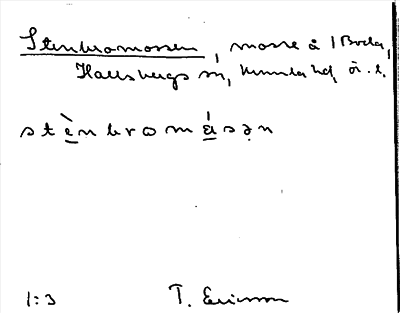 Stenbromossen, mosse å 1 Boda,
Hallsbergs sn, Kumla hd, ör. l.
stènbromǻsən
1:3 T. Ericsson